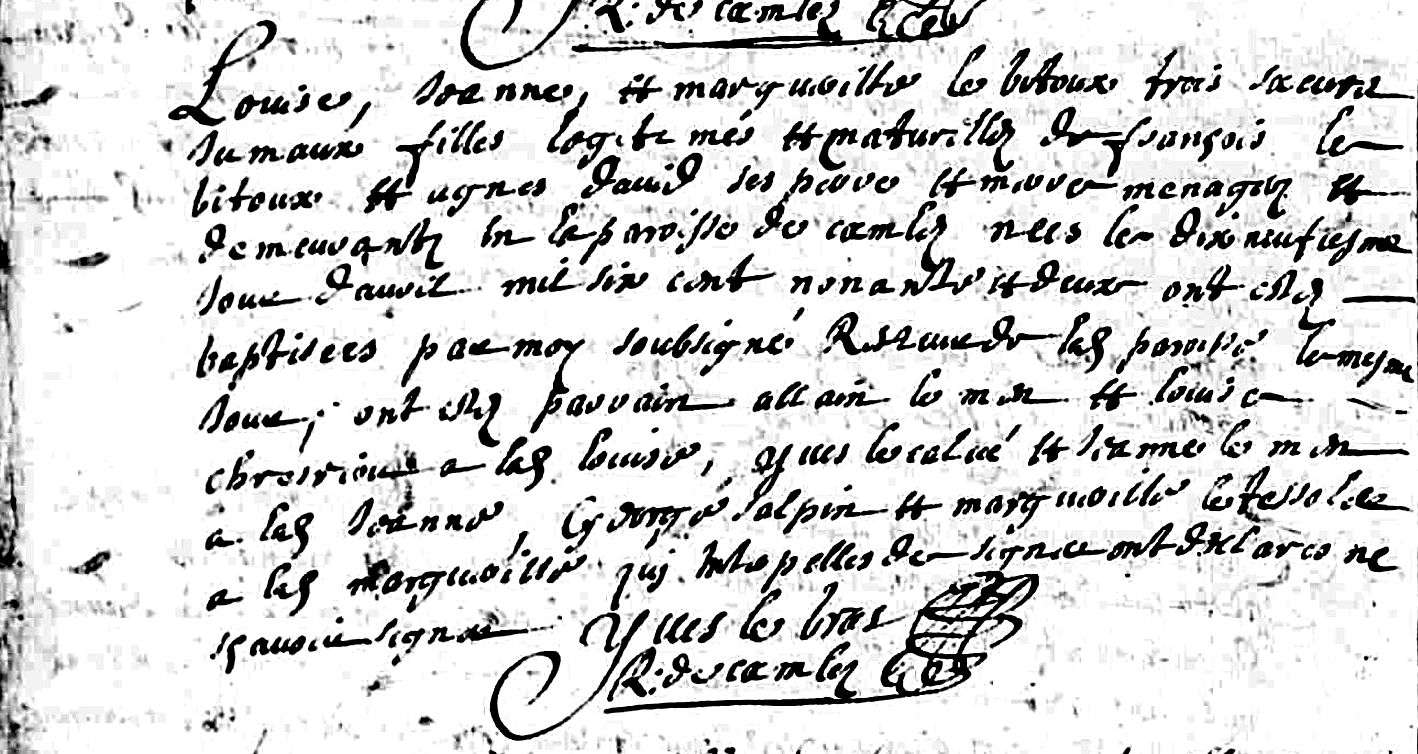 R: de camlez
Louise, Jeanne, et margueritte le bitoux trois soeurs
Jumaux filles legitimes et naturelles de françois le
bitoux et agnes david ses pere et mere menagers et
demeurants en la paroisse de camlez nees le dix neufiesme
Jour d'avril mil six cent nonante et deux ont estes
baptisees par moy soubsigné Recteur de lad paroisse le mesme
Jour; ont estes parrain allain le men et louise
a lad louise, yves le calvé et Jeanne le men
a lad Jeanne, George salpin et margueritte le tessoler
a lad margueritte qui Interpelles de signer ont declares ne
sçavoir signer Yves le bras
R: de camlez